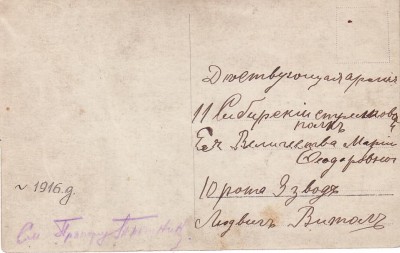 Действующая армия
11 Сибирскій стрелковый
полкъ
Ея Величества Маріи
Феодоровны
10 рота 3 зводъ
Людвигъ Витолъ
~ 1916.g.
См.